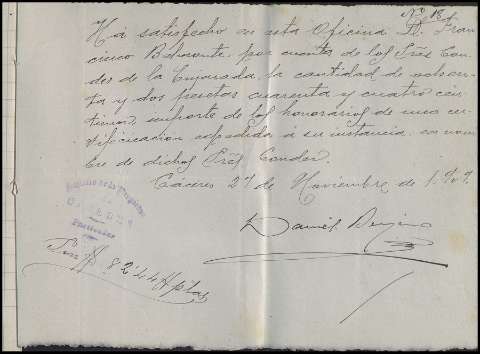 Nº 18
Ha satisfecho en esta Oficina D. Fran-
cisco Bahamonte, por cuenta de los Sres Con-
des de la Enjarada, la cantidad de ochen-
ta y dos pesetas cuarenta y cuatro cén-
timos, importe de los honorarios de una cer-
tificación expedida á su instancia en nom-
bre de dichos Sres Condes.
Cáceres 27 de Noviembre de 1909.
Registro de la Propiedad
de
CACERES
Daniel
Son # 82'44 # ptas